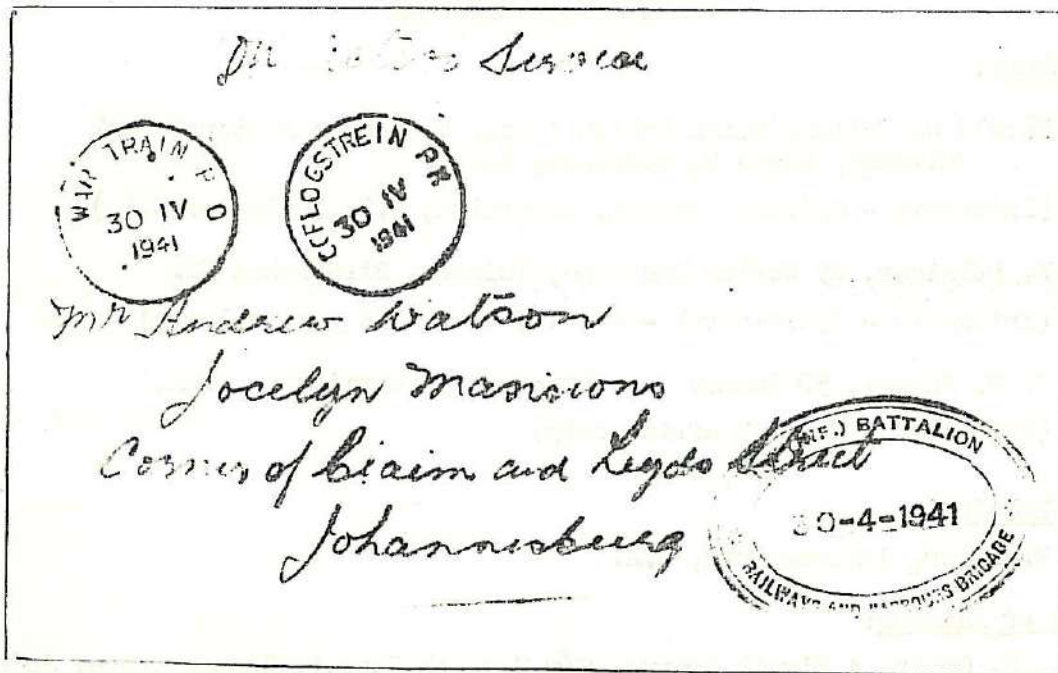 Service
WAR TRAIN P O
30 IV
1941
OORLOGSTREIN PK
30 IV
1941
Mr Andrew Watson
Jocelyn Mansions
Corner of Claim and Leyds Street
Johannesburg
(INF.) BATTALION
30-4-1941
RAILWAYS AND HARBOURS BRIGADE